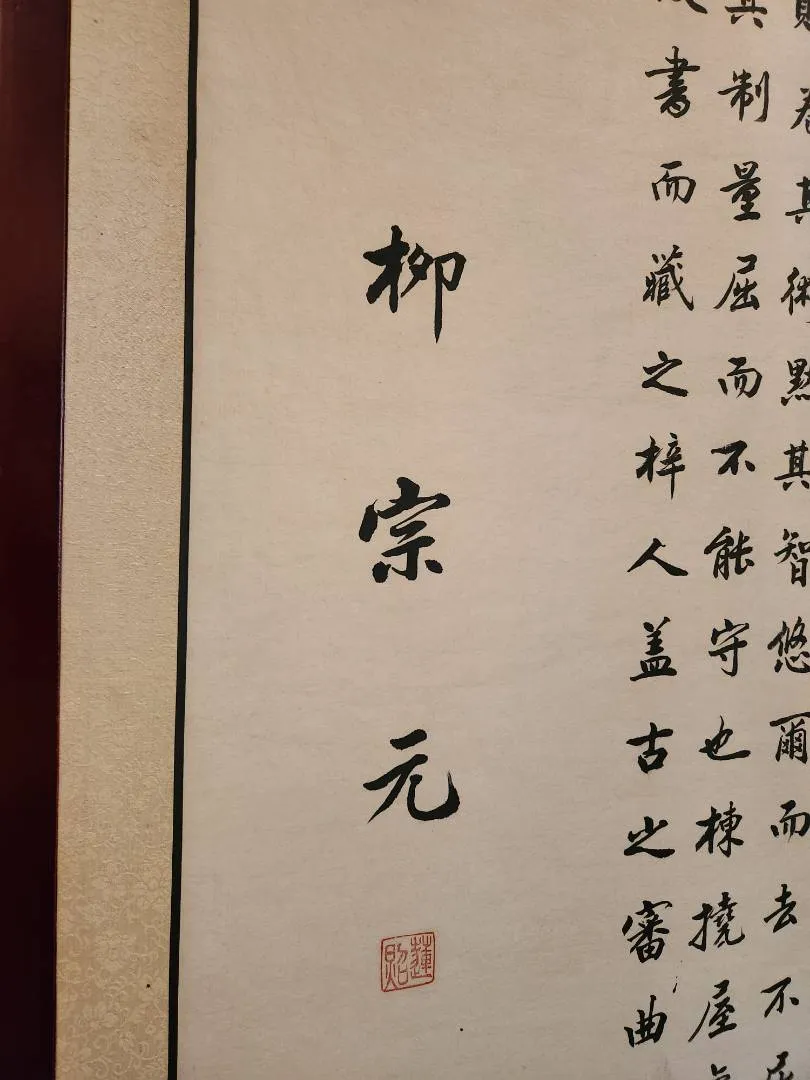 卷其術默其智悠爾而去不
其制量屈而不能守也棟撓屋
書而藏之梓人盖古之審曲
柳宗元
蓮